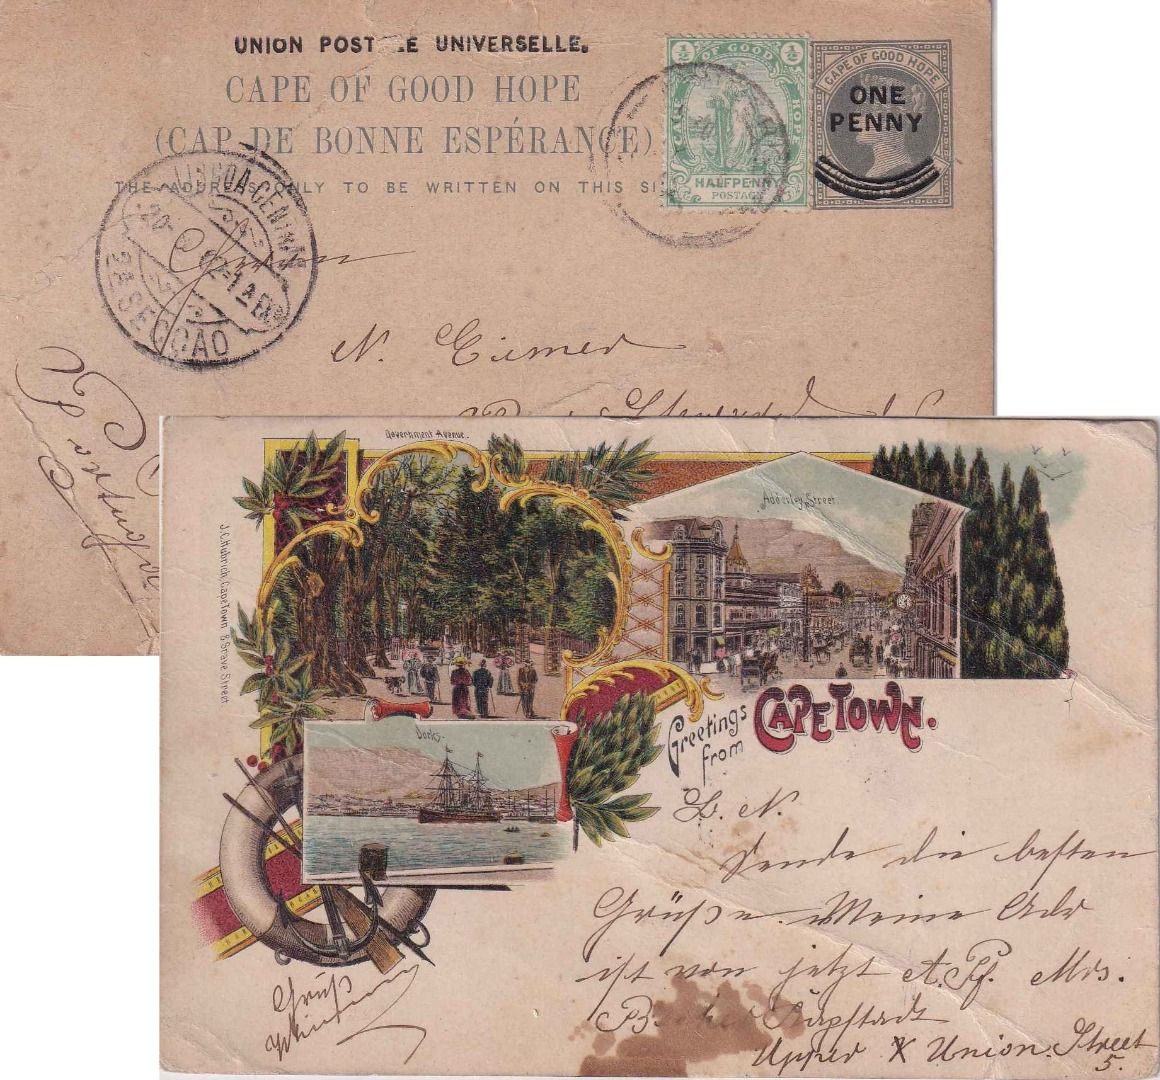 UNION POST LE UNIVERSELLE.
CAPE OF GOOD HOPE
(CAP DE BONNE ESPÉRANCE)
THE ADDRESS ONLY TO BE WRITTEN ON THIS SI
½ OF GOOD ½
CAPE
HOPE
HALFPENNY
POSTAGE
CAPE OF GOOD HOPE
ONE
PENNY
LISBOA CENTRAL
2ª SECÇÃO
N.
Government Avenue.
Adderley Street.
Docks.
J.C. Hubrich, Cape Town 8 Strave Street
Greetings
from
CAPETOWN.
L. N.
Sende die besten
Grüße. Meine Adr
ist von jetzt A. Pf. Mrs.
Kapstadt
Upper X Union. Street
5.
Gruß